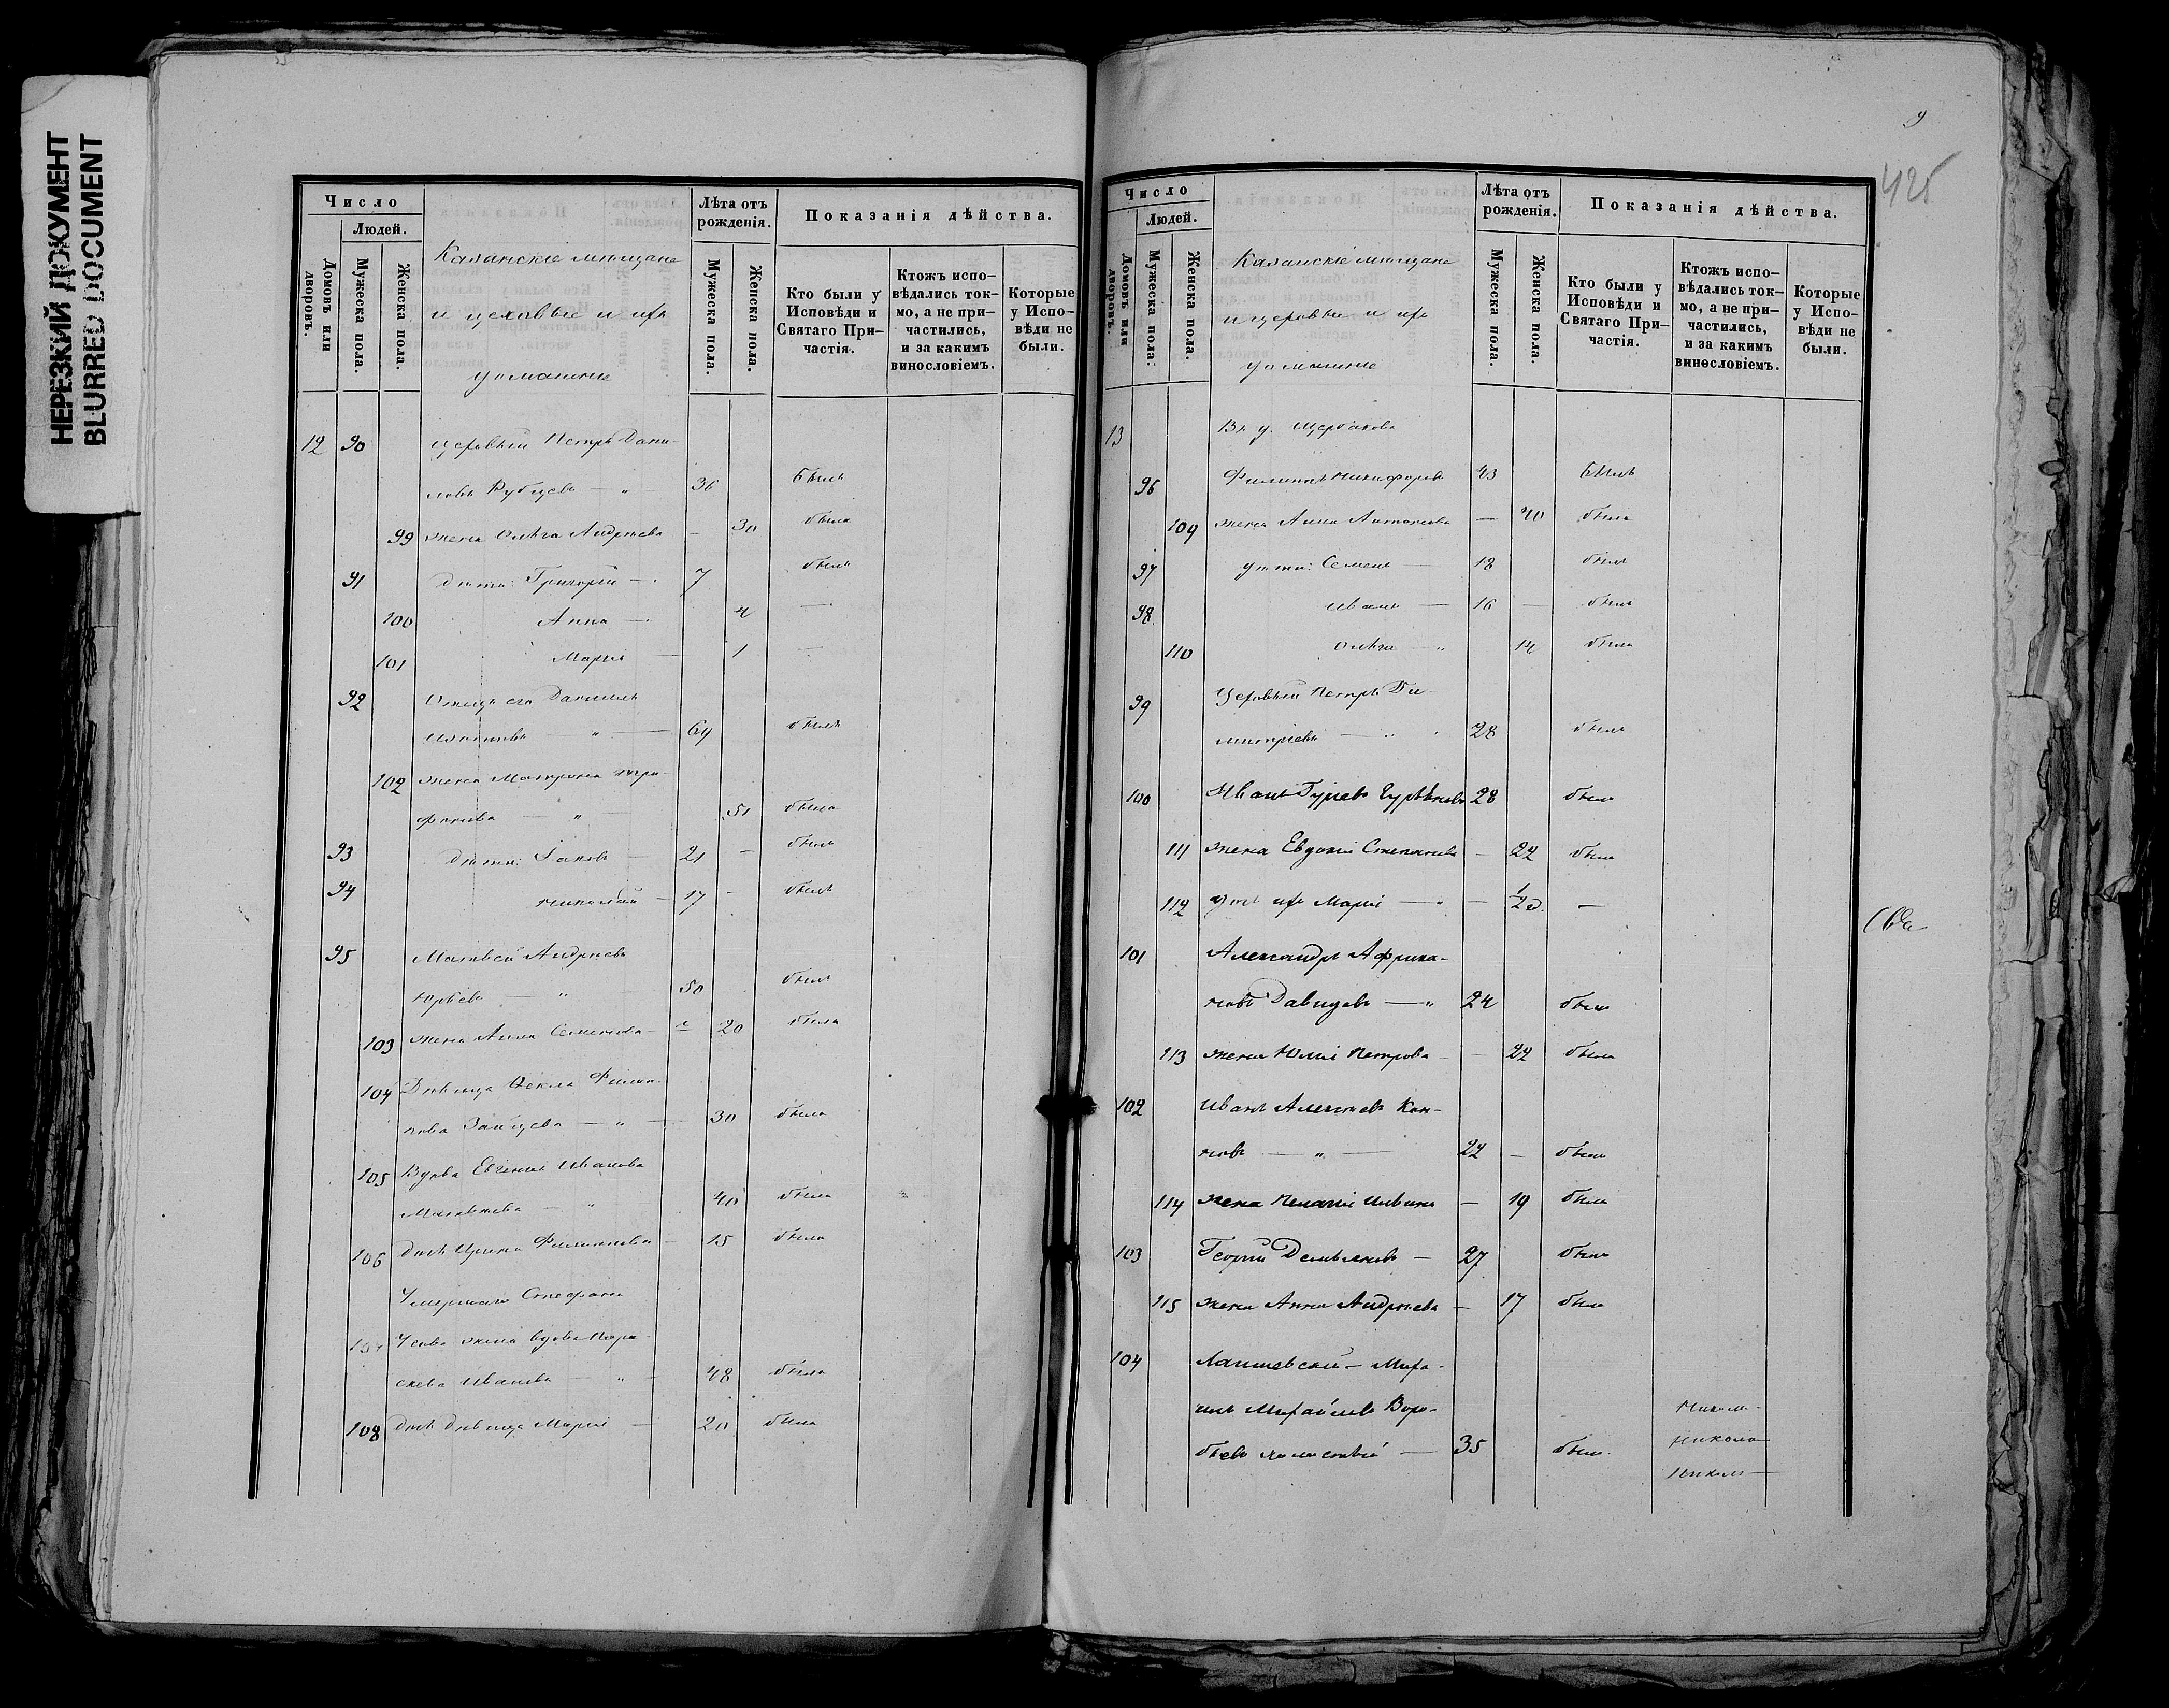 НЕРЕЗКИЙ ДОКУМЕНТ
BLURRED DOCUMENT
Число
Людей.
Домовъ или дворовъ.
Мужеска пола.
Женска пола.
Казанскіе мѣщане
и цеховые и ихъ
домашніе
Лѣта отъ рожденія.
Мужеска пола.
Женска пола.
Показанія дѣйства.
Кто были у Исповѣди и Святаго При-частія.
Ктожъ испо-вѣдались ток-мо, а не при-частились, и за какимъ винословіемъ.
Которые у Испо-вѣди не были.
12 90 цеховый Петръ Дани-
ловъ Рубцевъ — „ 36 былъ
99 жена Ольга Андреева — 30 была
91 дѣти: Григорій — 7 былъ
100 Анна — 4 —
101 Марія — 1 —
92 Отецъ его Даніилъ
— „ — 64 былъ
102 жена Матрона
— „ — 51 была
93 дѣти: Іаковъ — 21 — былъ
94 Николай — 17 — былъ
95 Матвей Андреевъ
Юрьевъ — „ 50 былъ
103 жена Анна Семенова — 20 была
104 Дѣвица Ѳекла Филип-
пова Зайцева — „ — 30 была
105 Вдова Евгенія Иванова
Матвѣева — „ 40 была
106 дочь Ирина Филиппова — 15 была
Умершаго Стефана
жена вдова Пара-
скева Иванова — „ — 48 была
108 дочь дѣвица Марія — 20 была
9
425
Число
Людей.
Домовъ или дворовъ.
Мужеска пола.
Женска пола.
Казанскіе мѣщане
и цеховые и ихъ
домашніе
Лѣта отъ рожденія.
Мужеска пола.
Женска пола.
Показанія дѣйства.
Кто были у Исповѣди и Святаго При-частія.
Ктожъ испо-вѣдались ток-мо, а не при-частились, и за какимъ винословіемъ.
Которые у Испо-вѣди не были.
13 Въ д. Щербакова
96 Филиппъ Никифоровъ 43 былъ
109 жена Анна Антонова — 40 была
97 дѣти: Семенъ — 18 былъ
98 Иванъ — 16 — былъ
110 Ольга — „ 14 была
99 Цеховый Петръ Ди-
митріевъ — „ 28 былъ
100 Иванъ Гурьевъ 28 былъ
111 жена Евдокія Степанова — 22 была
112 дочь ихъ Марія — „ — 1/2 г. —
101 Александръ Африка-
новъ Давыдовъ — „ 24 былъ
113 жена Юлія Петрова — 22 была
102 Иванъ Алексѣевъ Кон-
новъ — „ — 22 — былъ
114 жена Пелагія Ильина — 19 была
103 Георгій Демьяновъ — 27 былъ
115 жена Анна Андреева — 17 была
104 Лаишевскій — Миха-
илъ Михайловъ Воро-
бьевъ холостой — 35 былъ
Никола-
Никола—
Никола—